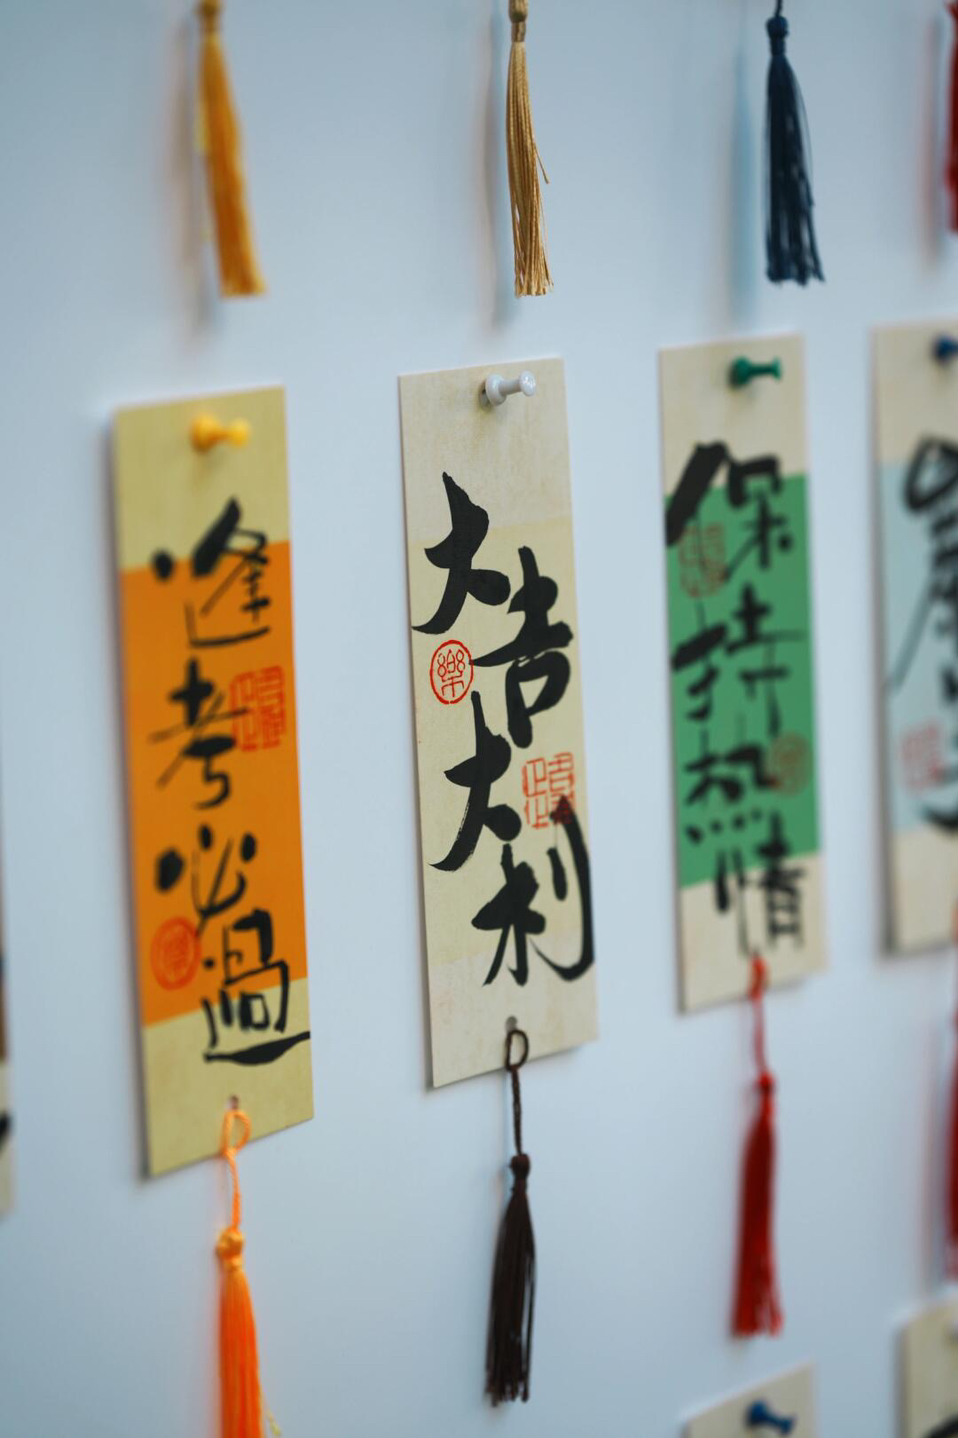 逢考必過
大吉大利
樂
保持熱情